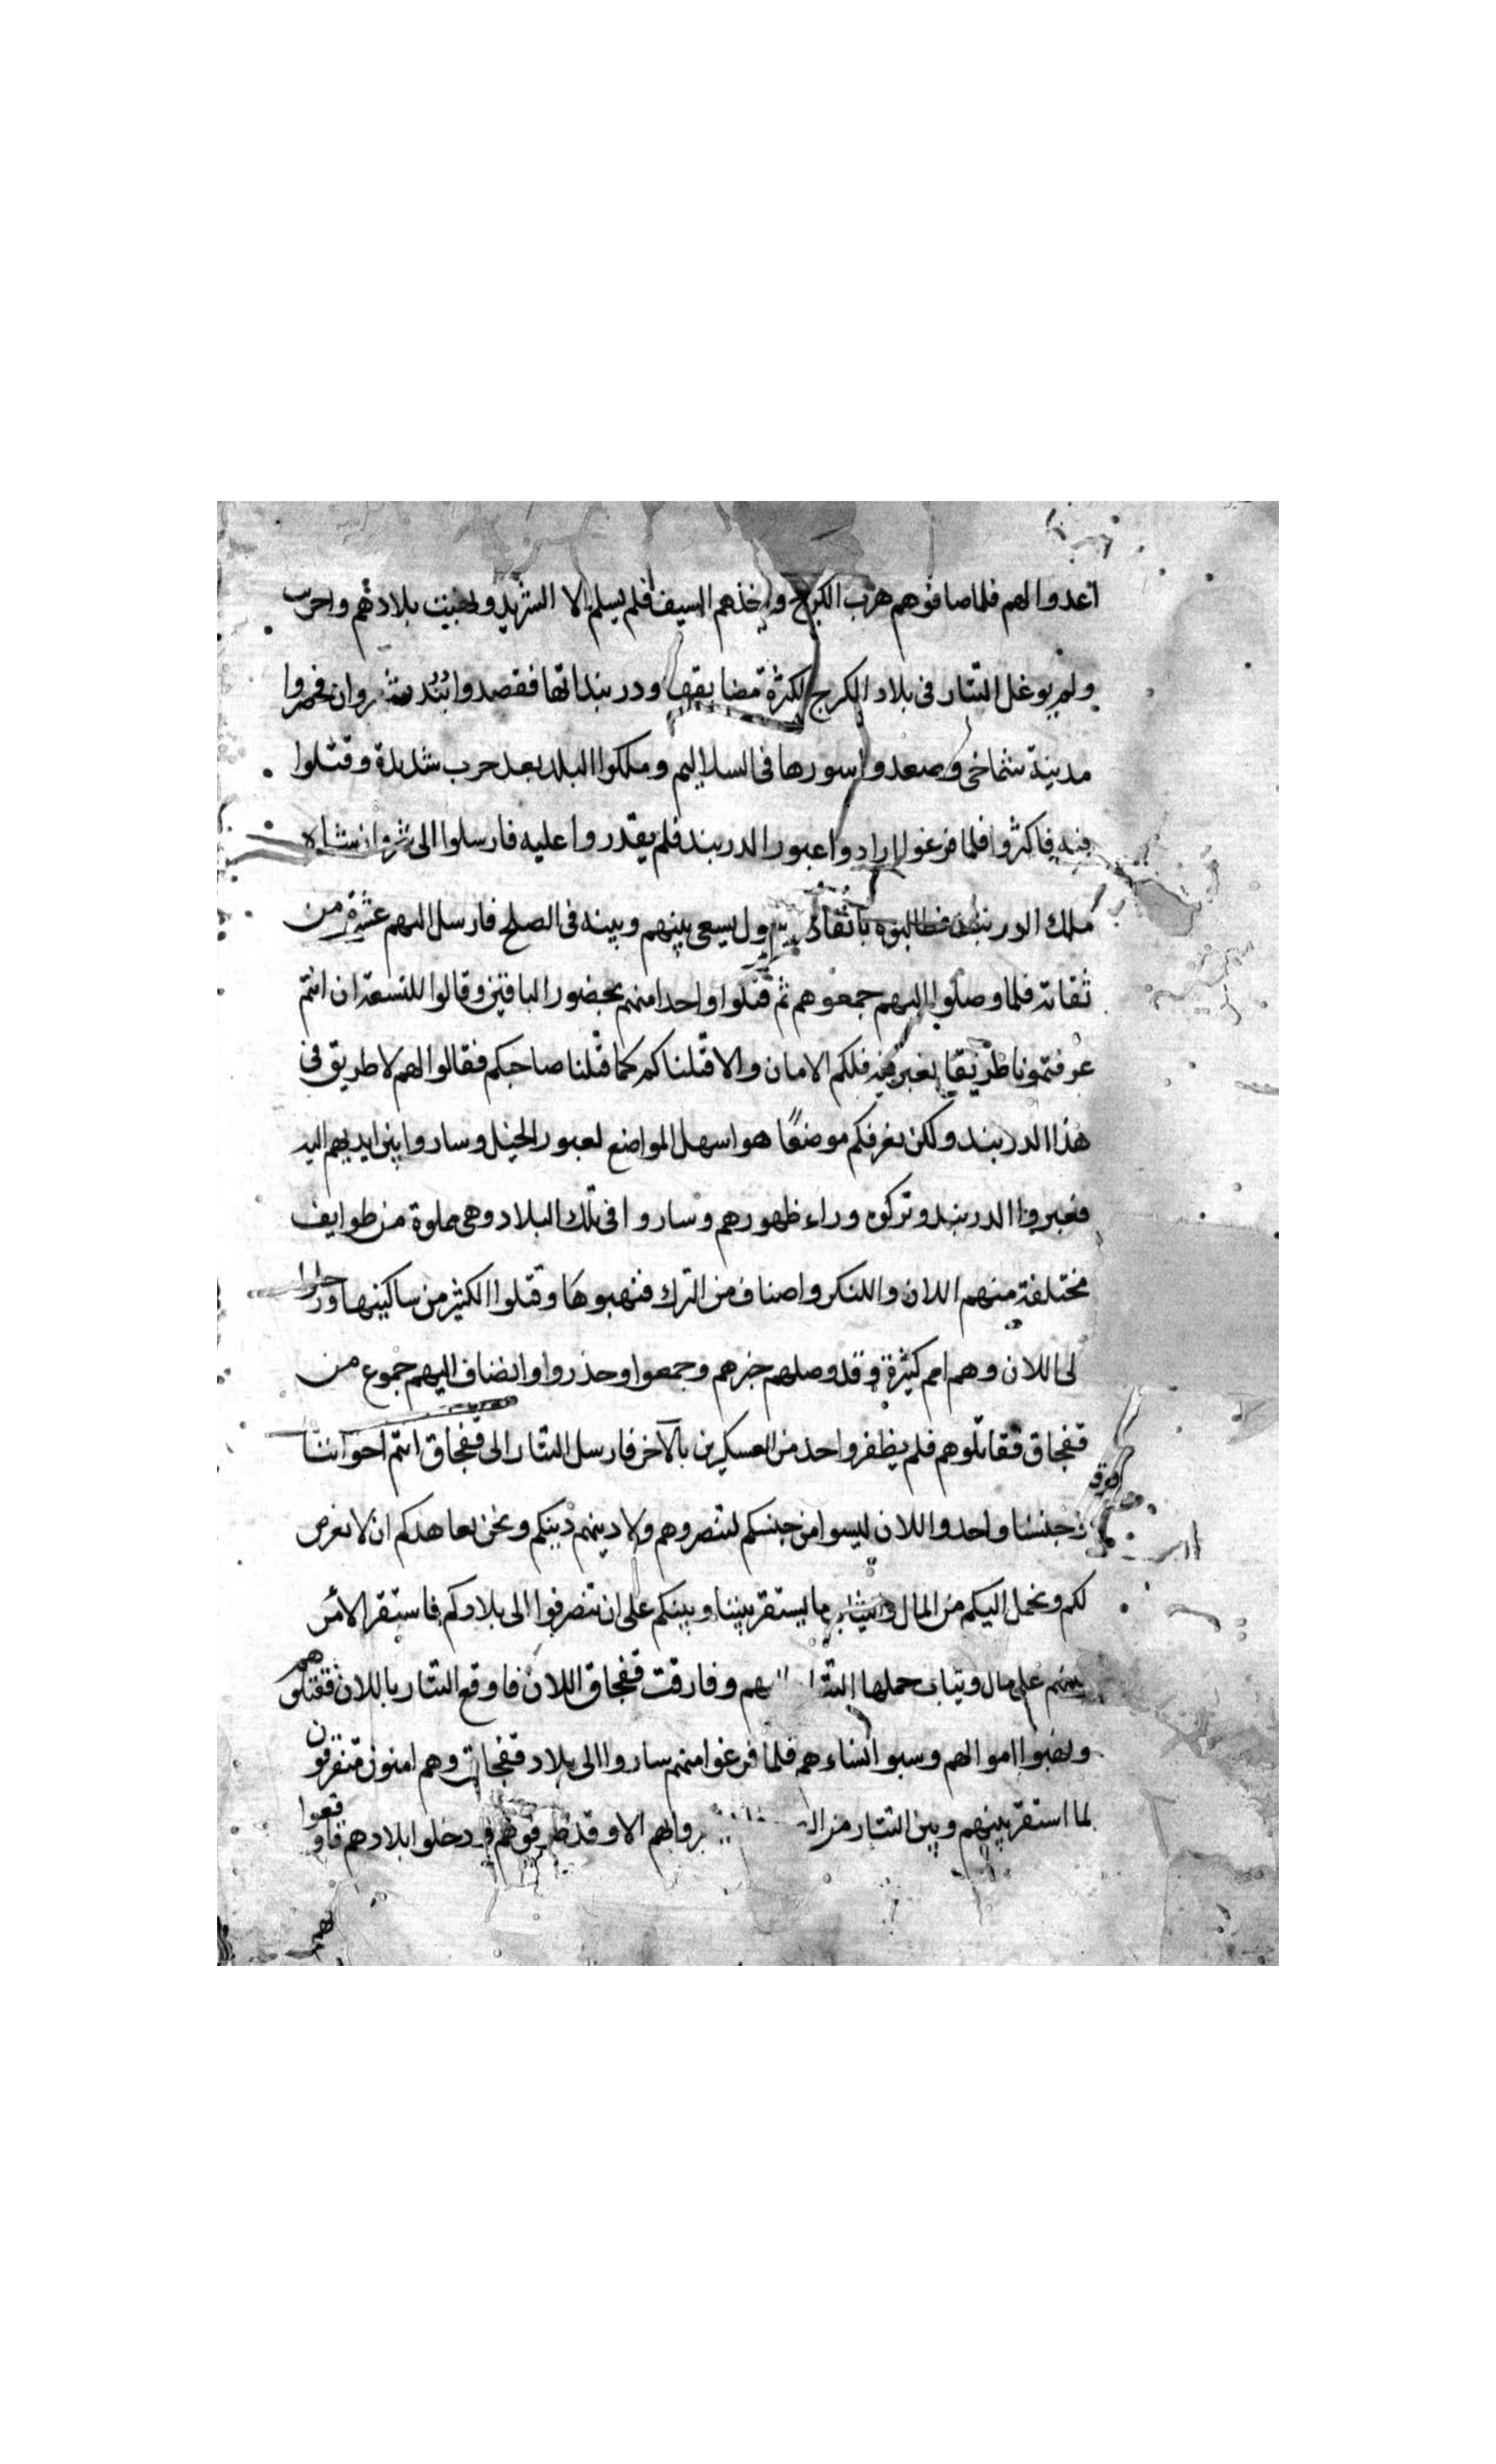 اعدوا لهم فلما صافوهم هرب الكرج واخذهم السيف فلم يسلم الا الشريد ونهبت بلادهم واحرب
ولم يوغل التتار فى بلاد الكرج لكثرة مضايقها ودربنداتها فقصدوا شروان فحصروا
مدينة شماخى وصعدوا سورها فى السلاليم وملكوا البلد بعد حرب شديدة وقتلوا
فيه فاكثروا فلما فرغوا ارادوا عبور الدربند فلم يقدروا عليه فارسلوا الى شروان شاه
ملك الدربند فطالبوه بانفاذ رسول يسعى بينهم وبينه فى الصلح فارسل اليهم عشرة من
ثقاته فلما وصلوا اليهم جمعوهم ثم قتلوا واحدا منهم بحضور الباقين وقالوا للتسعة ان انتم
عرفتمونا طريقا نعبر فيه فلكم الامان والا قتلناكم كما قتلنا صاحبكم فقالوا لهم لا طريق فى
هذا الدربند ولكن نعرفكم موضعًا هو اسهل المواضع لعبور الخيل وساروا بين ايديهم اليه
فعبروا الدربند وتركوه وراء ظهورهم وساروا فى تلك البلاد وهى مملوة من طوايف
مختلفة منهم اللان واللكز واصناف من الترك فنهبوها وقتلوا الكثير من ساكنيها ورحلوا
الى اللان وهم امم كثيرة وقد وصلهم خبرهم وجمعوا وحذروا وانضاف اليهم جموع من
قفجاق فقاتلوهم فلم يظفر واحد من العسكرين بالآخر فارسل التتار الى قفجاق انتم اخواننا
وجنسنا واحد واللان ليسوا من جنسكم لتنصروهم ولا دينهم دينكم ونحن نعاهدكم ان لا نعرض
لكم ونحمل اليكم من المال والثياب ما يستقر بيننا وبينكم على ان تنصرفوا الى بلادكم فاستقر الامر
بينهم على مال وثياب حملها التتار اليهم وفارقت قفجاق اللان فاوقع التتار باللان فقتلوهم
ونهبوا اموالهم وسبوا نساءهم فلما فرغوا منهم ساروا الى بلاد قفجاق وهم امنون متفرقون
لما استقر بينهم وبين التتار من الا وقد طرقوهم ودخلوا بلادهم فاوقعوا
بهم